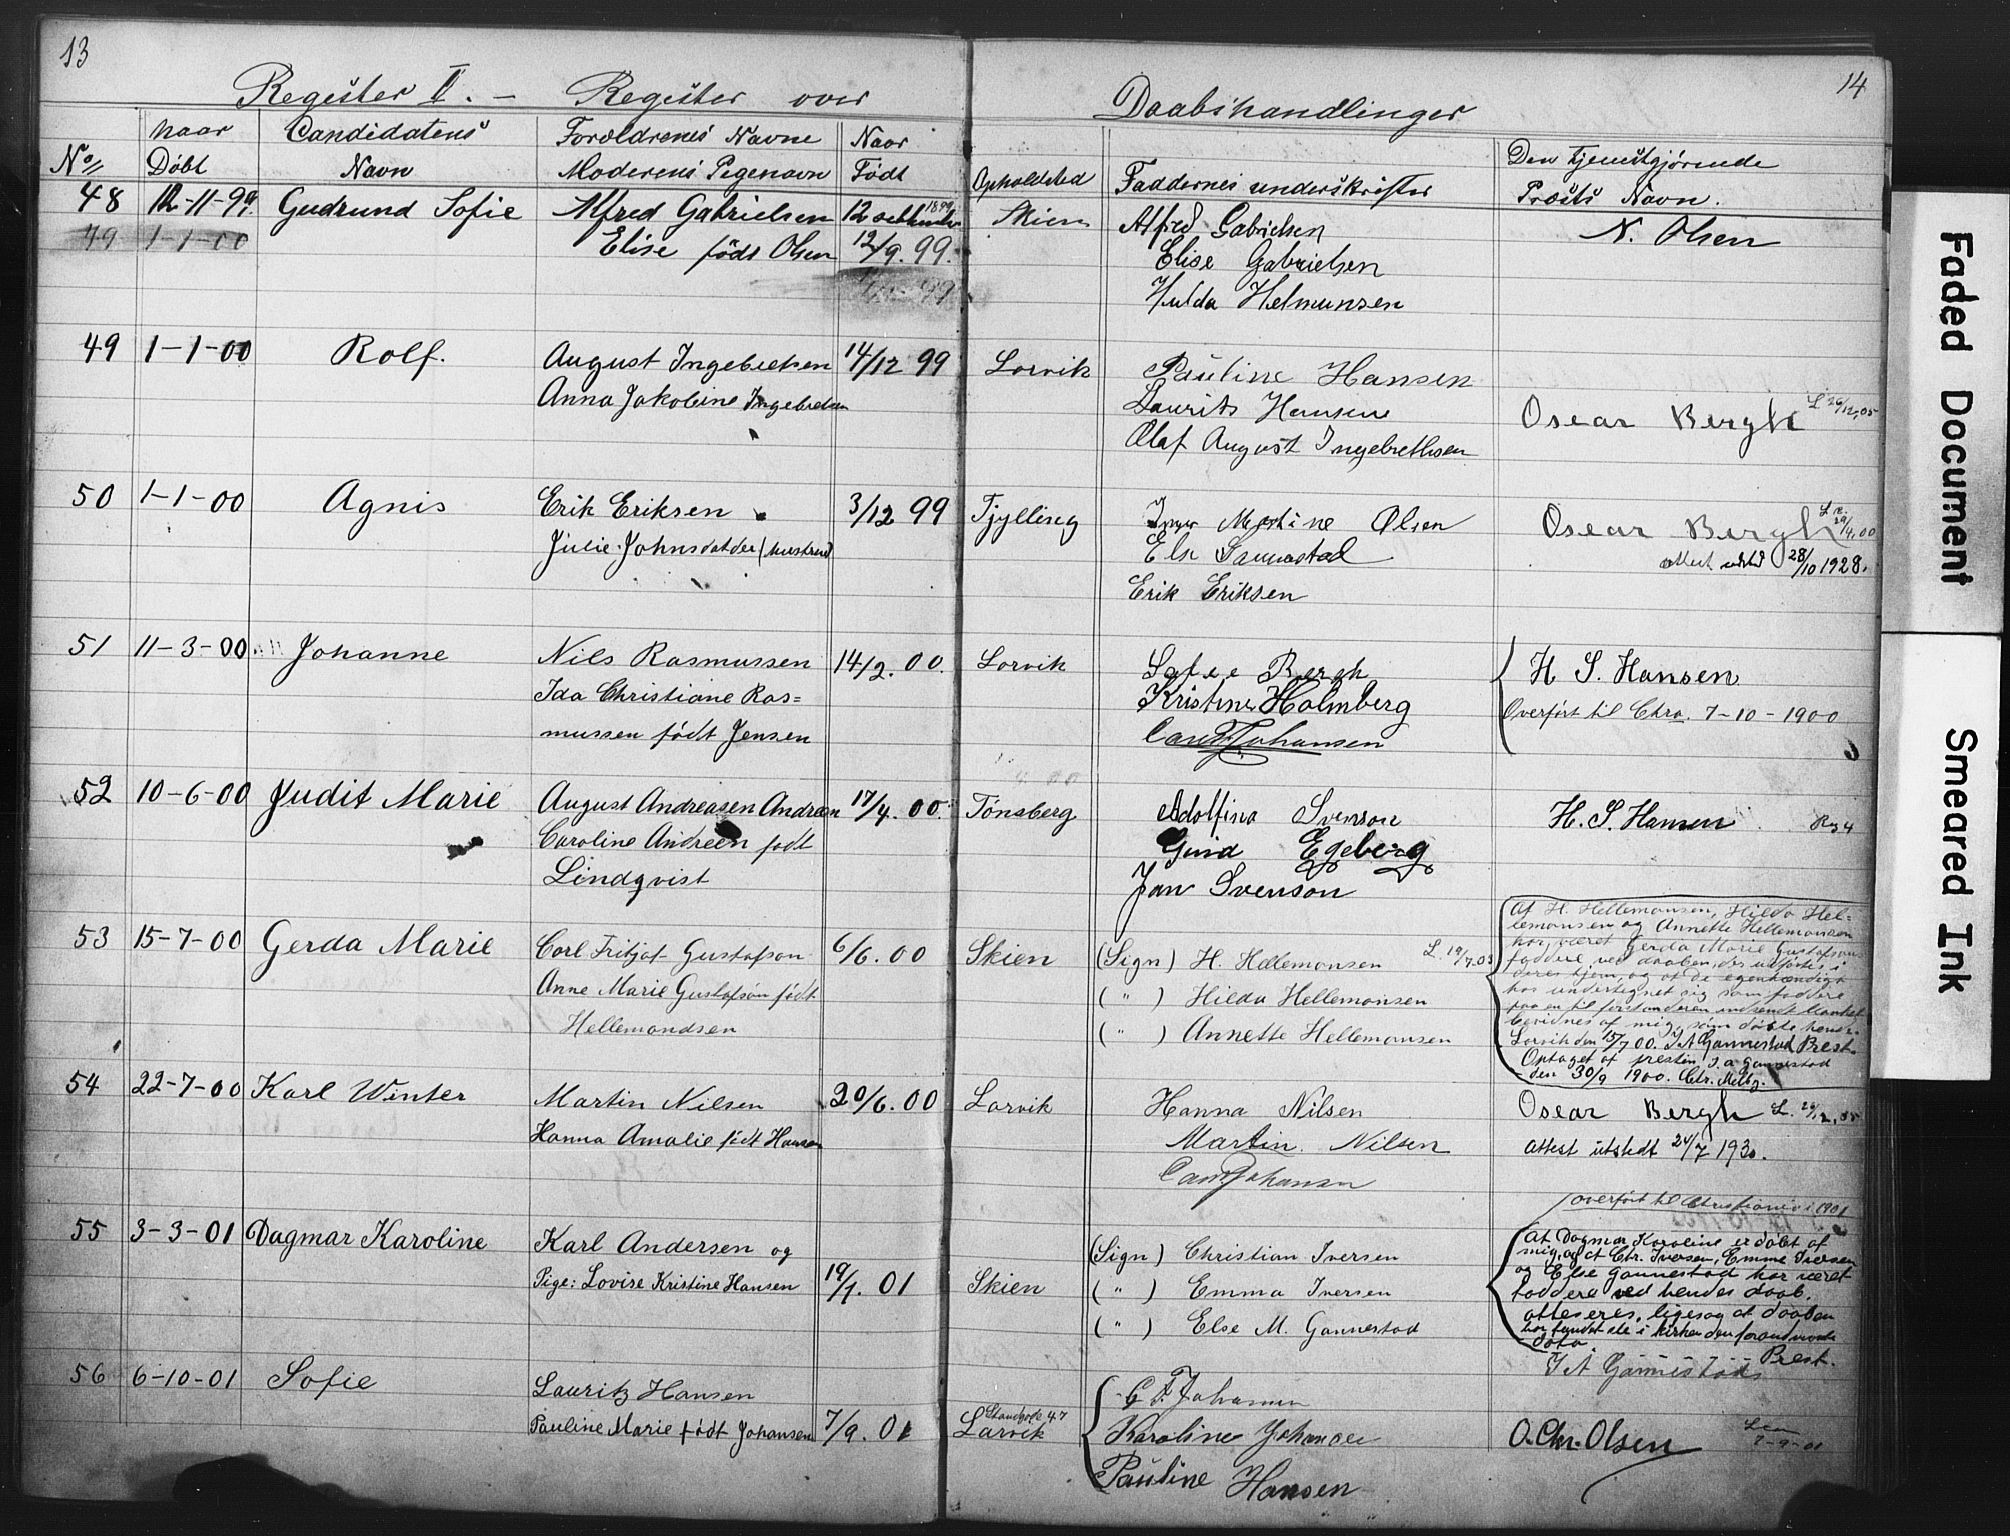 13
Register II. – Register over
No
Naar Døbt
Candidatens Navn
Forældrenes Navne Moderens Pigenavn
Naar Født
48 12-11-99 Gudrund Sofie
Alfred Gabrielsen
Elise født Olsen
12 september 1899
12/9. 99.
49 1-1-00
49 1-1-00 Rolf.
August Ingebretsen 14/12 99
Anna Jakobine Ingebretsen
50 1-1-00 Agnis
Erik Eriksen 3/12 99
Julie Johnsdatder (hustru)
51 11-3-00 Johanne
Nils Rasmussen 14/2. 00.
Ida Christiane Ras=
mussen født Jensen
52 10-6-00 Judit Marie
August Andreasen Andreen 17/4. 00.
Caroline Andreen født
Lindqvist
53 15-7-00 Gerda Marie
Carl Fritjof Gustafson 6/6. 00
Anne Marie Gustafson født
Hellemondsen
54 22-7-00 Karl Winter
Martin Nilsen 20/6. 00
Hanna Amalie født Hansen
55 3-3-01 Dagmar Karoline
Karl Andersen og
Pige: Lovise Kristine Hansen 19/1. 01
56 6-10-01 Sofie
Lauritz Hansen
Pauline Marie født Johansen 7/9. 01
14
Daabshandlinger
Opholdsted
Faddernes underskrifter
Den tjenestgjørende
Præsts Navn.
Skien Alfred Gabrielsen N. Olsen
Elise Gabrielsen
Hulda Helmunsen
Larvik Pauline Hansen
Laurits Hansen
Oscar Bergh L 26/12,05
Olaf August Ingebrethsen
Tjylling Inger Martine Olsen
Oscar Bergh 29/4.00
Else
attest udsted 28/10 1928.
Erik Eriksen
Larvik Sofie Bergh H S. Hansen
Kristine Holmberg
Overført til Chra. 7-10-1900
Carl F Johansen
Tønsberg Adolfina Svenson H. S. Hansen
Egeberg
Jan Svenson
Skien (Sign) H. Hellemonsen
(") Hilda Hellemonsen
(") Annette Hellemonsen
At H. Hellemonsen, Hilda Hel=
lemonsen og Annette Hellemonsen
har været Gerda Marie Gustafsons
faddere ved daaben, der udførtes i
deres hjem, og at de egenhændigt
har undertegnet sig som faddere
paa en til forstanderen indsendt blanket
bevidnes af mig, som døbte hende.
Larvik den 15/7 00. J A Gannestad Prest.
Optaget af presten J. A Gannestad
den 30/9 1900. Chr. Melby.
Larvik Hanna Nilsen
Oscar Bergh L. 26/12,05
Martin Nilsen
attest utstedt 24/7 1930.
Carl F Johansen
overført til Christiania i 1901
(Sign) Christian Iversen
Skien (") Emma Iversen
(") Else M. Gannestad
At Dagmar Karoline er døbt af
mig, og at Chr. Iversen, Emma Iversen
og Else Gannestad har været
faddere ved hendes daab,
atteseres, ligesaa at daaben
har fundet sted i kirken den foranførte
dato.
J A Gannestad Prest.
G F Johansen
Strandgade 47
Larvik Karoline Johansen
O. Chr. Olsen
7-9-01
Pauline Hansen
Faded Document
Smeared Ink